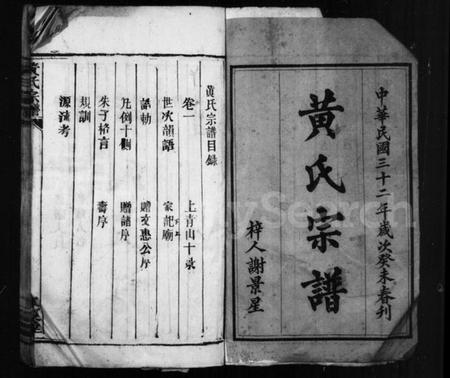 中華民國三十二年歲次癸未春刊
黃氏宗譜
梓人謝景星
黃氏宗譜目錄
卷一
上青山十詠
世次韻語
家記廟
誥勅
贈文惠公序
凡例十則
贈諸序
朱子格言
壽序
規訓
源流考
MySearch